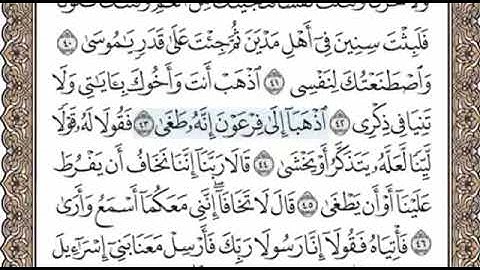 وَلَا تَحْزَنَ وَقَتَلْتَ نَفْسًا فَنَجَّيْنَٰكَ مِنَ ٱلْغَمِّ وَفَتَنَّٰكَ فُتُونًا
فَلَبِثْتَ سِنِينَ فِىٓ أَهْلِ مَدْيَنَ ثُمَّ جِئْتَ عَلَىٰ قَدَرٍ يَٰمُوسَىٰ ٤٠
وَٱصْطَنَعْتُكَ لِنَفْسِى ٤١ ٱذْهَبْ أَنتَ وَأَخُوكَ بِـَٔايَٰتِى وَلَا
تَنِيَا فِى ذِكْرِى ٤٢ ٱذْهَبَآ إِلَىٰ فِرْعَوْنَ إِنَّهُۥ طَغَىٰ ٤٣ فَقُولَا لَهُۥ قَوْلًا
لَّيِّنًا لَّعَلَّهُۥ يَتَذَكَّرُ أَوْ يَخْشَىٰ ٤٤ قَالَا رَبَّنَآ إِنَّنَا نَخَافُ أَن يَفْرُطَ
عَلَيْنَآ أَوْ أَن يَطْغَىٰ ٤٥ قَالَ لَا تَخَافَآ ۖ إِنَّنِى مَعَكُمَآ أَسْمَعُ وَأَرَىٰ
٤٦ فَأْتِيَاهُ فَقُولَآ إِنَّا رَسُولَا رَبِّكَ فَأَرْسِلْ مَعَنَا بَنِىٓ إِسْرَٰٓءِيلَ